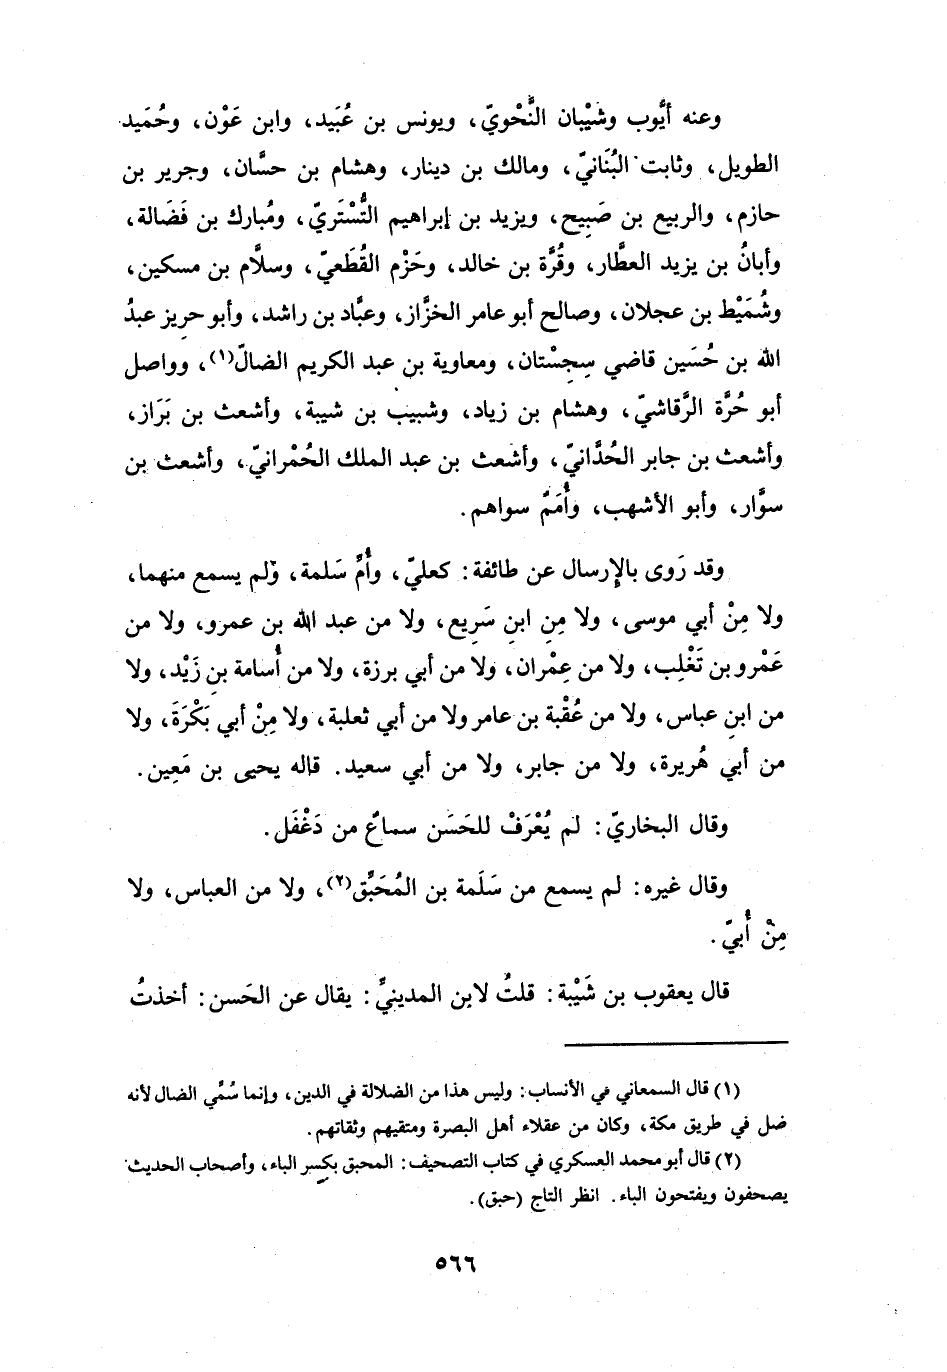 وعنه أيُّوب وشَيْبان النَّحْويّ، ويونس بن عُبَيد، وابن عَوْن، وحُمَيد
الطويل، وثابت البُنَانيّ، ومالك بن دينار، وهشام بن حسَّان، وجرير بن
حازم، والربيع بن صَبِيح، ويزيد بن إبراهيم التُّسْتَريّ، ومُبارك بن فَضَالة،
وأبانُ بن يزيد العطَّار، وقُرَّة بن خالد، وحَزْم القُطَعيّ، وسلَّام بن مسكين،
وشُمَيْط بن عجلان، وصالح أبو عامر الخزَّاز، وعبَّاد بن راشد، وأبو حريز عبدُ
الله بن حُسَين قاضي سِجِسْتان، ومعاوية بن عبد الكريم الضالّ(١)، وواصل
أبو حُرَّة الرَّقاشيّ، وهشام بن زياد، وشبيب بن شيبة، وأشعث بن بَرَاز،
وأشعث بن جابر الحُدَّانيّ، وأشعث بن عبد الملك الحُمْرانيّ، وأشعث بن
سوَّار، وأبو الأشهب، وأُمَمٌ سواهم.
وقد رَوى بالإرسال عن طائفة: كعليّ، وأُمِّ سَلمة، ولم يسمع منهما،
ولا مِنْ أبي موسى، ولا مِنِ ابنِ سَرِيع، ولا من عبد الله بن عمرو، ولا من
عَمْرو بن تَغْلِب، ولا من عِمْران، ولا من أبي برزة، ولا من أُسامة بن زَيْد، ولا
من ابنِ عباس، ولا من عُقْبة بن عامر ولا من أبي ثعلبة، ولا مِنْ أبي بَكْرَةَ، ولا
من أبي هُريرة، ولا من جابر، ولا من أبي سعيد. قاله يحيى بن مَعِين.
وقال البخاريّ: لم يُعْرَفْ للحَسَن سماعٌ من دَغْفَل.
وقال غيره: لم يسمع من سَلَمة بن المُحَبِّق(٢)، ولا من العباس، ولا
مِنْ أُبيّ.
قال يعقوب بن شَيْبة: قلتُ لابن المدينيِّ: يقال عن الحَسن: أخذتُ
(١) قال السمعاني في الأنساب: وليس هذا من الضلالة في الدين، وإنما سُمِّي الضال لأنه
ضل في طريق مكة، وكان من عقلاء أهل البصرة ومتقيهم وثقاتهم.
(٢) قال أبو محمد العسكري في كتاب التصحيف: المحبق بكسر الباء، وأصحاب الحديث
يصحفون ويفتحون الباء. انظر التاج (حبق).
٥٦٦